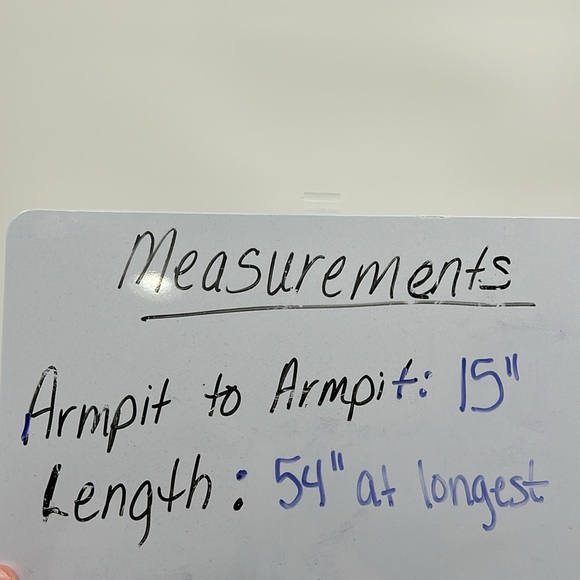 Measurements
Armpit to Armpit: 15"
Length: 54" at longest